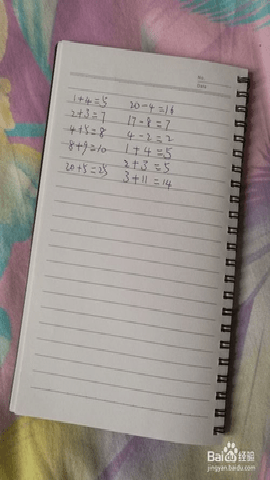 No.
Date
1+4=5 20-4=16
2+3=7 17-8=7
4+5=8 4-2=2
8+9=10 1+4=5
20+5=25 2+3=5
3+11=14
Baidu 经验
jingyan.baidu.com